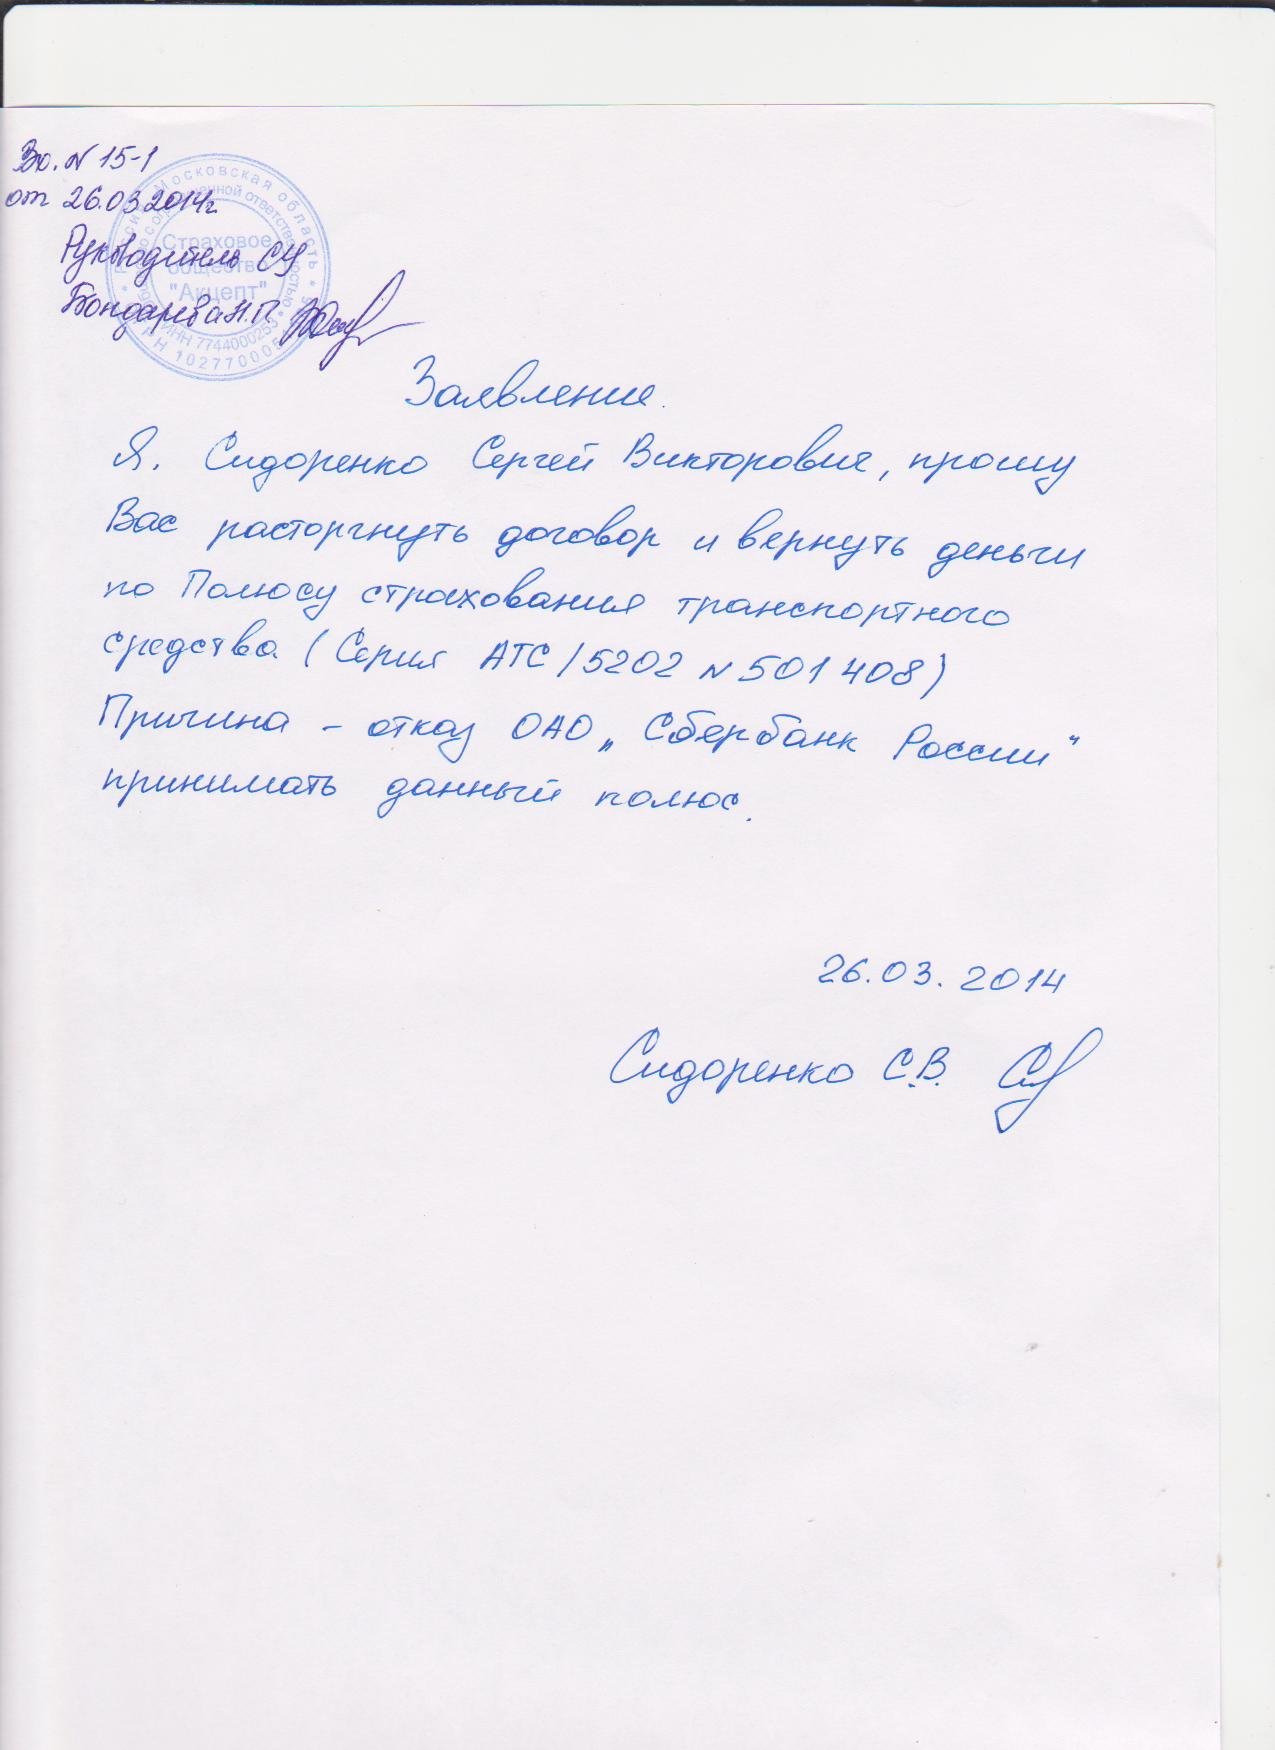 Вх. N 15-1
от 26.03 2014г.
Руководитель СУ
Бондарева Н.П.
Московская область
ответственностью
Страховое
общество
"Акцепт"
ИНН 7744000253
Заявление.
Я. Сидоренко Сергей Викторович, прошу
Вас расторгнуть договор и вернуть деньги
по Полюсу страхования транспортного
средства (Серия АТС/5202 N 501 408)
Причина - отказ ОАО „Сбербанк России“
принимать данный полюс.
26.03. 2014
Сидоренко С.В.